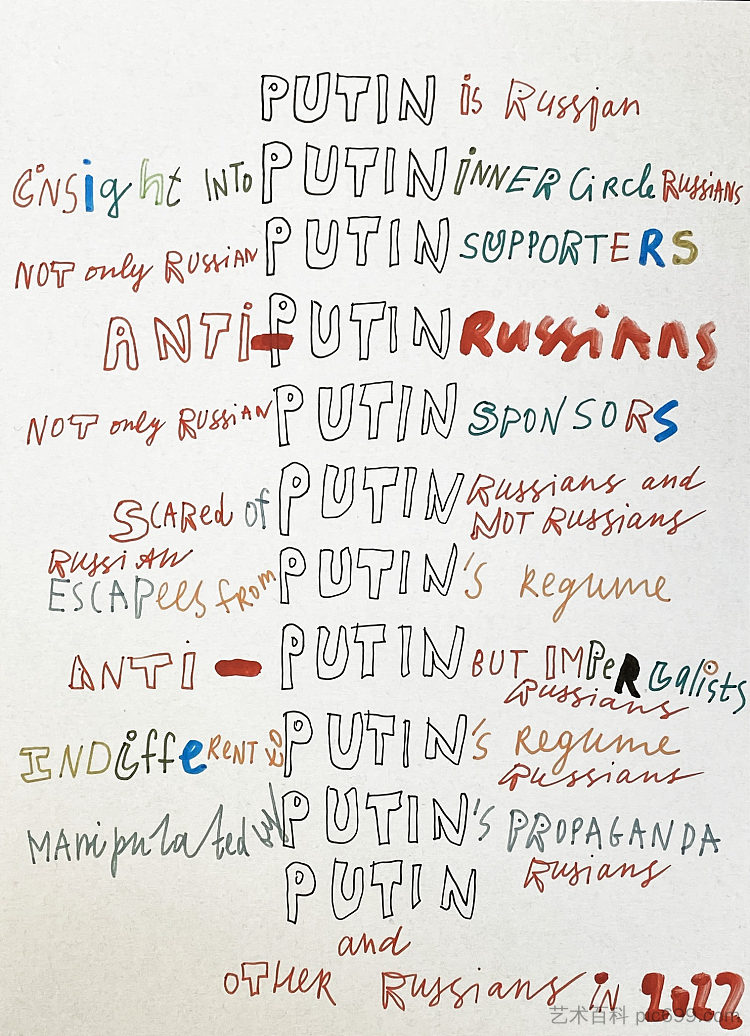 PUTIN is Russian
insight INTO PUTIN INNER CIRCLE RUSSIANS
NOT only RUSSIAN PUTIN SUPPORTERS
ANTI-PUTIN RUSSIANS
NOT only RUSSIAN PUTIN SPONSORS
SCARed of PUTIN Russians and
NOT Russians
RUSSIAN
ESCAPees fROM PUTIN'S Regume
ANTI - PUTIN BUT IMPeRialists
Russians
INDifferent to PUTIN'S Regume
Russians
MAnipulated by PUTIN'S PROPAGANDA
Rusians
PUTIN
and
OTHER Russians in 2022
艺术百科 pic699.com